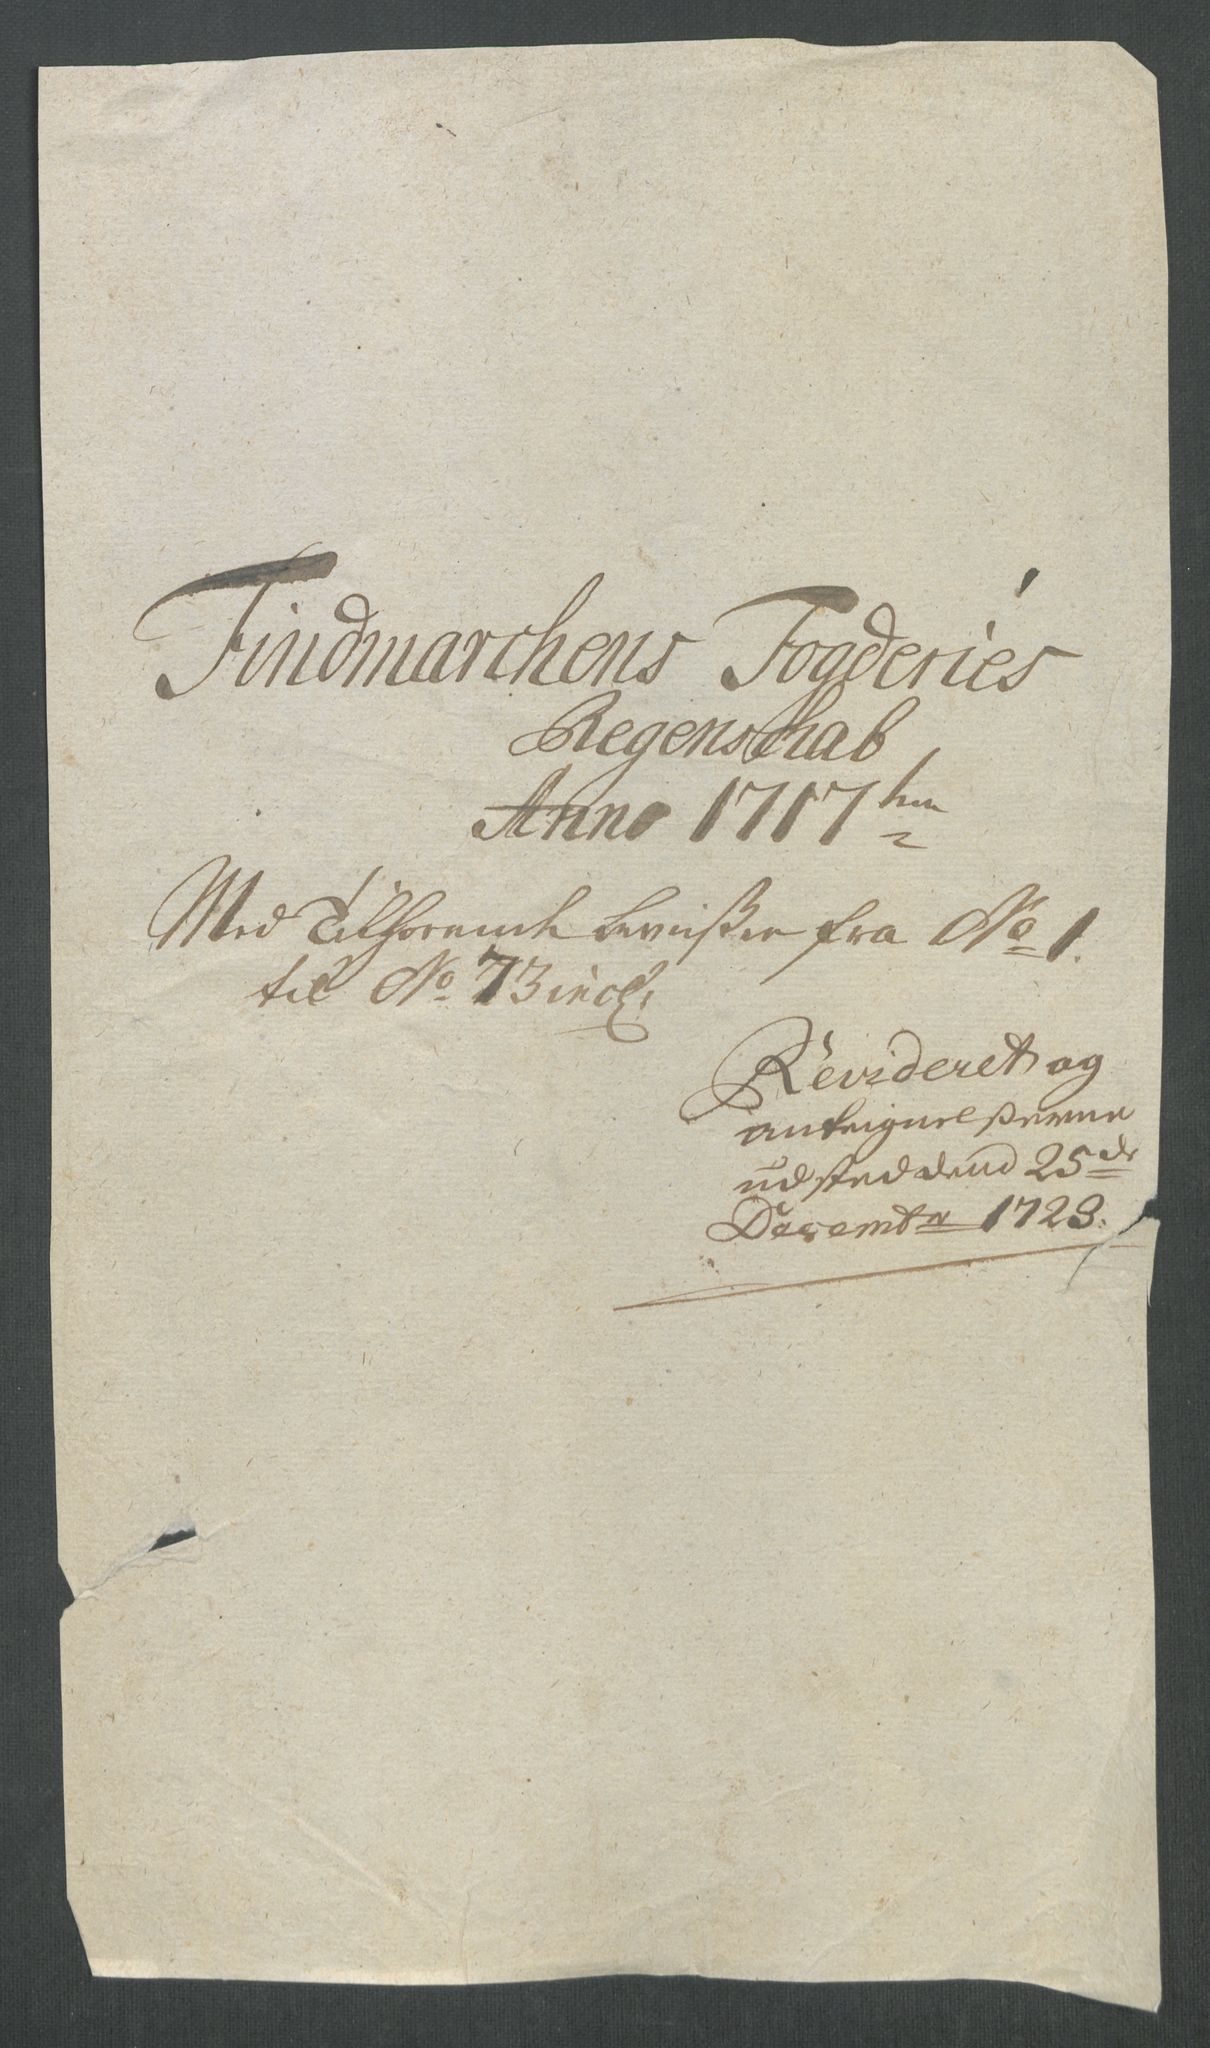 Findmarchens Fogderies
Regenschab
Anno 1717
Med Tilhørende beviißer fra No 1.
til No 73 incl:
Revideret og
anteignelßerne
udsted dend 25de
Decembr 1723.